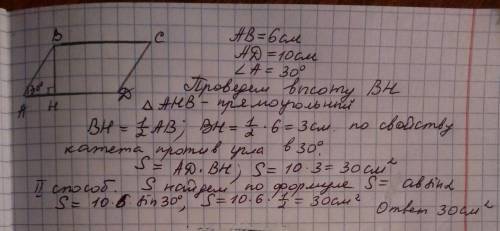 B
C
A
30°
H
D
AB=6см
AD=10см
∠A=30°
Проведем высоту BH
△ AHB - прямоугольный
BH = 1/2 AB; BH = 1/2 · 6 = 3см по свойству
катета против угла в 30°.
S = AD · BH; S = 10 · 3 = 30см²
II способ. S найдем по формуле S = ab sin α
S = 10·6 sin 30°; S = 10·6·1/2 = 30см²
Ответ 30см²